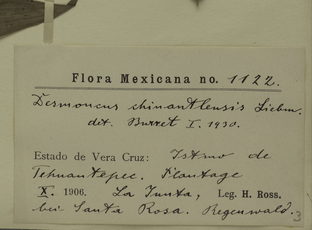 Flora Mexicana no. 1122.
Desmoncus chinantlensis Liebm.
det. Burret I. 1930.
Estado de Vera Cruz: Istmo de
Tehuantepec. Plantage
X. 1906. La Junta, Leg. H. Ross.
bei Santa Rosa. Regenwald.
3